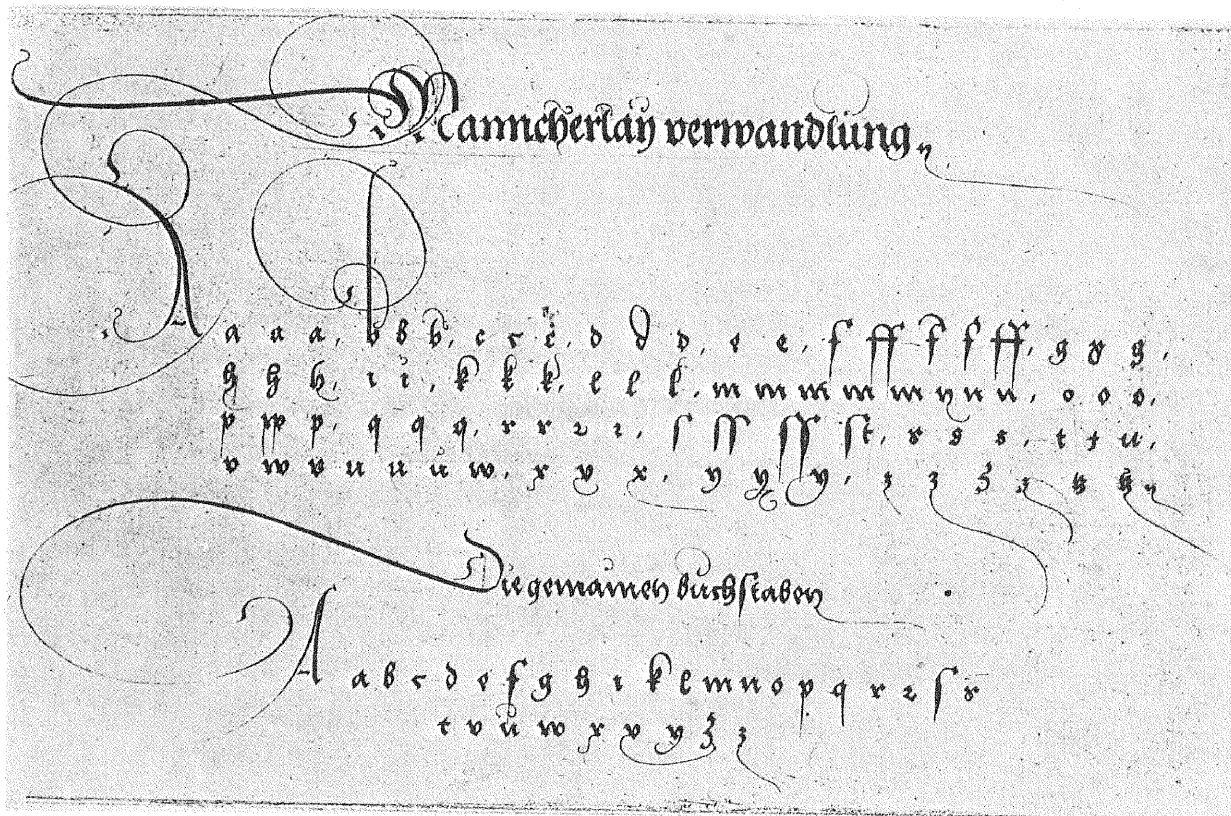 Manncherlaÿ verwandlŭng
A a a a, b b b, c c c, d d d, e e, f ff f f ff, g g g,
h h h, i i, k k k, l l l, m m m m m n n n, o o o,
p pp p, q q q, r r ꝛ ꝛ, ſ ſſ ſſ ſt, s s s, t t u,
v w v u u ŭ w, x x x, y y y y, z z z z tz tz
Die gemainen bŭchſtaben
A a b c d e f g h i k l m n o p q r ꝛ ſ s
t v ŭ w x v y z z